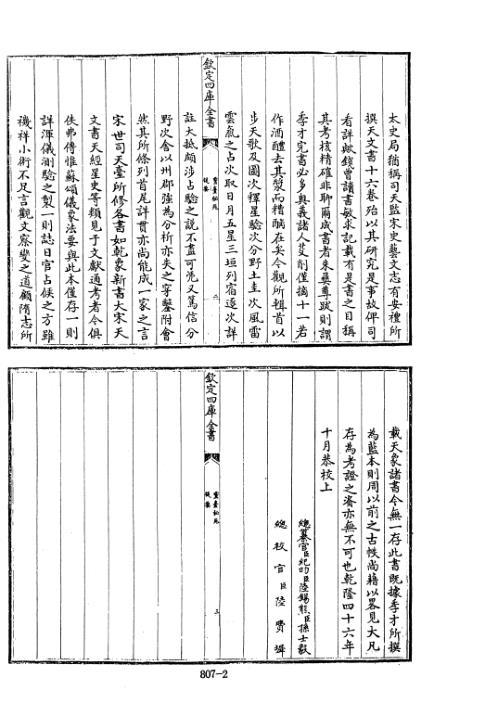 太史局猶稱司天監宋史藝文志有安禮所
撰天文書十六卷殆以其研究是事故俾司
看詳歟錢曾讀書敏求記載有是書之目稱
其考核精確非聊爾成書者朱彝尊跋則謂
季才完書必多奥義諸人芟削僅摘十一若
作酒醴去其漿而糟醨在矣今觀所輯首以
步天歌及圖次釋星驗次分野土圭次風雷
雲氣之占次取日月五星三垣列宿逐次詳
欽定四庫全書
靈臺祕苑
提要
二
註大抵頗涉占驗之說不盡可凴又篤信分
野次舍以州郡强為分析亦失之穿鑿附會
然其所條列首尾詳貫亦尚能成一家之言
宋世司天臺所修各書如乾象新書大宋天
文書天經星史等類見于文獻通考者今俱
佚弗傳惟蘇頌儀象法要與此本僅存一則
詳渾儀測驗之製一則誌日官占候之方雖
禨祥小術不足言觀文察變之道顧隋志所
載天象諸書今無一存此書既據季才所撰
為藍本則周以前之古帙尚藉以畧見大凡
存為考證之資亦無不可也乾隆四十六年
十月恭校上
總纂官臣紀昀臣陸錫熊臣孫士毅
總校官臣陸費墀
欽定四庫全書
靈臺祕苑
提要
三
807-2